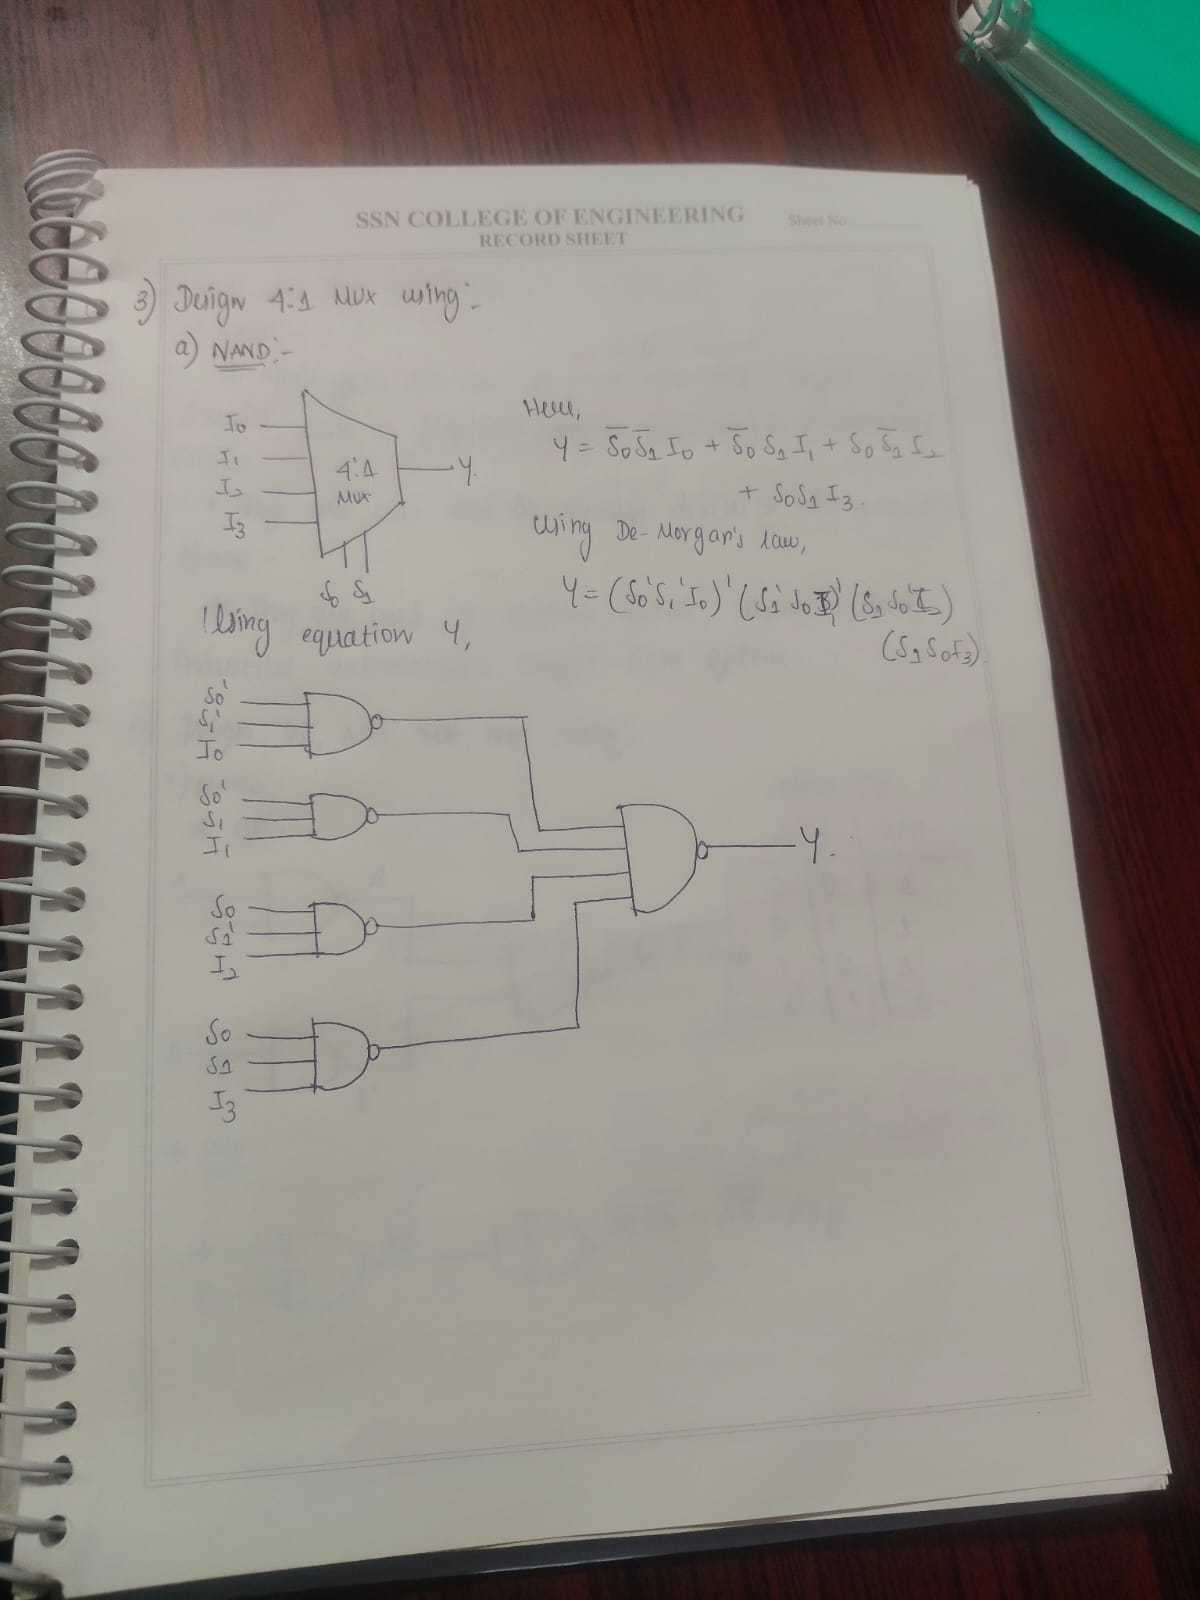 SSN COLLEGE OF ENGINEERING
Sheet No.
RECORD SHEET
3) Design 4:1 MUX using:-
a) NAND:-
I0
I1
I2
I3
4:1
MUX
Y
S0 S1
Here,
Y = S̅0 S̅1 I0 + S̅0 S1 I1 + S0 S̅1 I2
+ S0 S1 I3.
Using De-Morgan's law,
Y = (S0' S1' I0)' (S1' S0 I1)' (S1 S0' I2)
(S1 S0 I3)
Using equation Y,
S0'
S1'
I0
S0'
S1
I1
S0
S1'
I2
S0
S1
I3
Y.